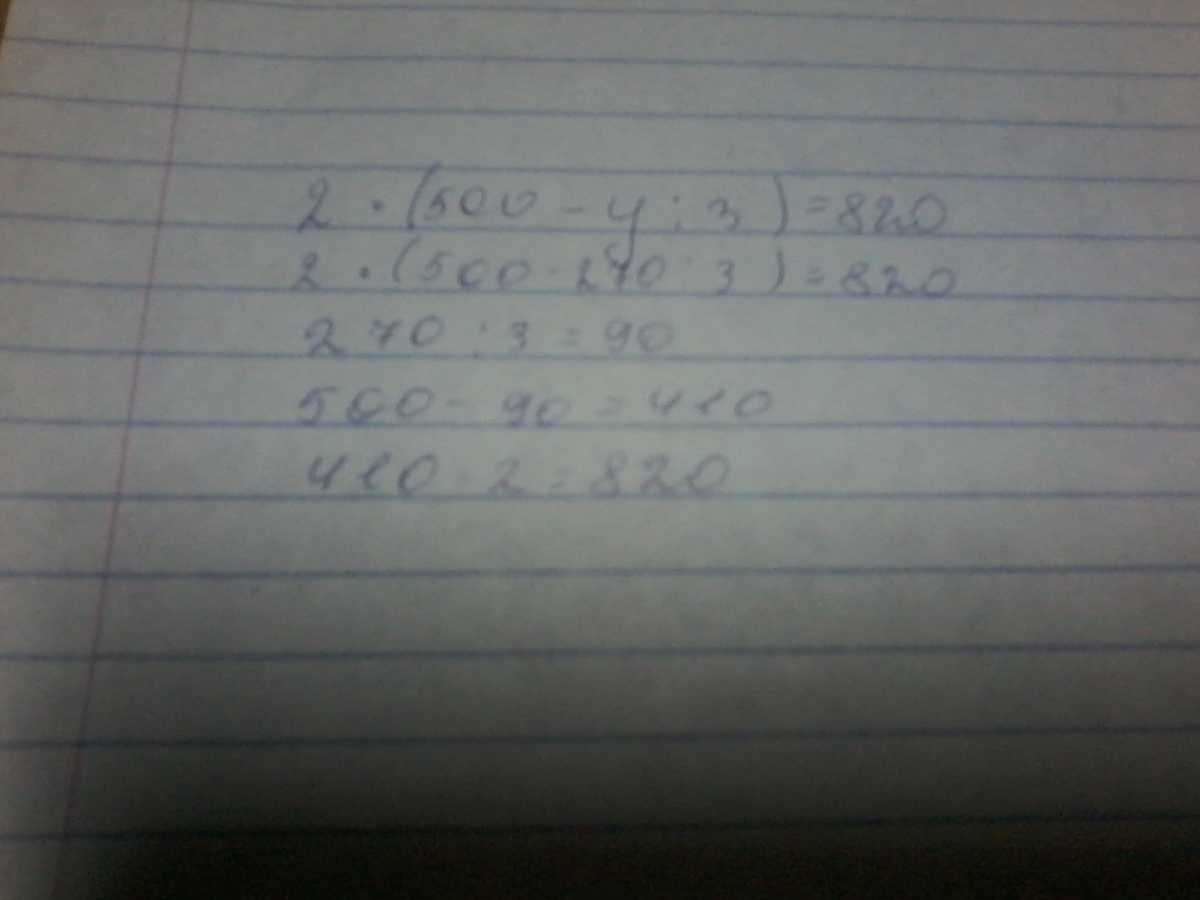 2 · (500 - y : 3) = 820
2 · (500 - 270 : 3) = 820
270 : 3 = 90
500 - 90 = 410
410 · 2 = 820